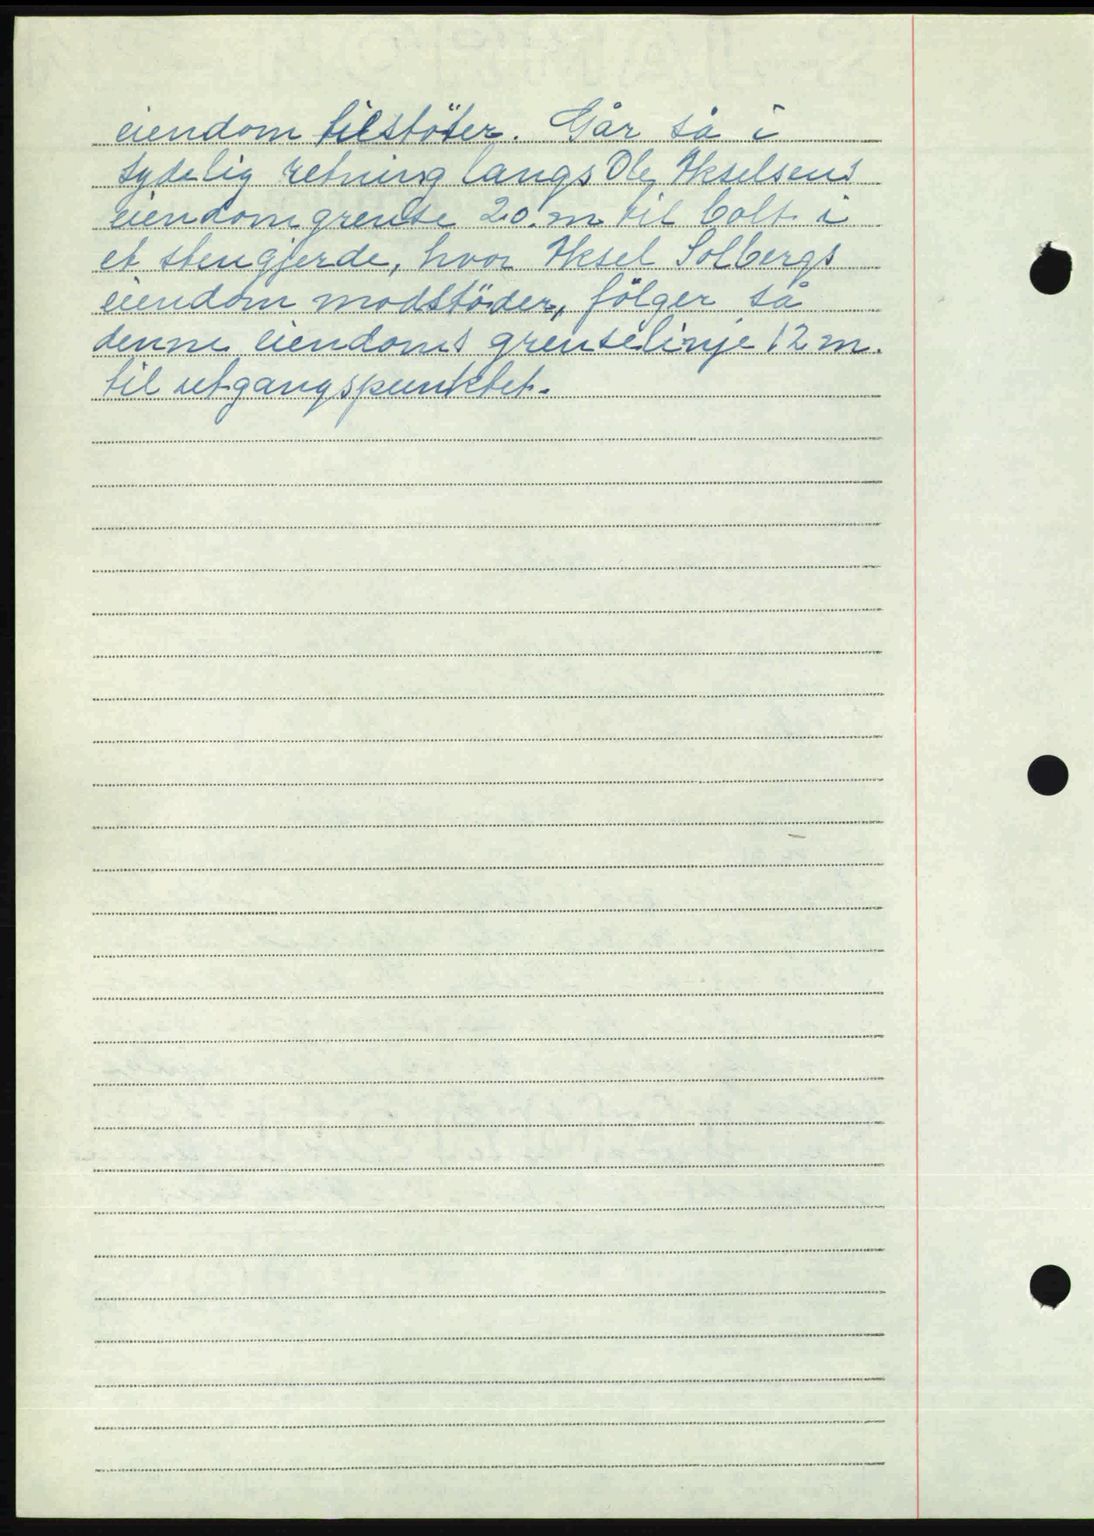 eiendom tilstöter. Går så i
sydelig retning langs Ole Akselsens
eiendomgrense 20. m til bolt i
et stengjerde, hvor Aksel Solbergs
eiendom modstöder, fölger så
denne eiendoms grenselinje 12 m.
til utgangspunktet.